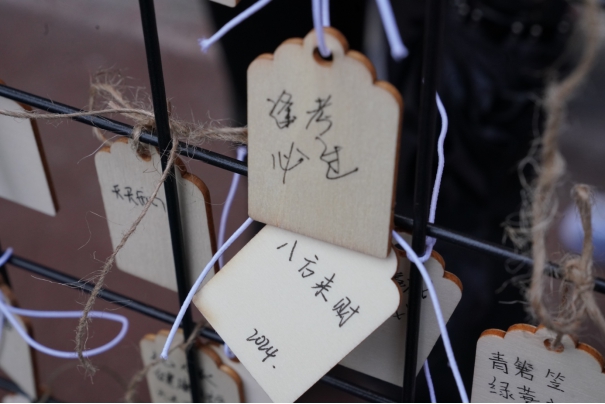 逢考
必过
八方来财
2024.
天天开心
青箬笠
绿蓑